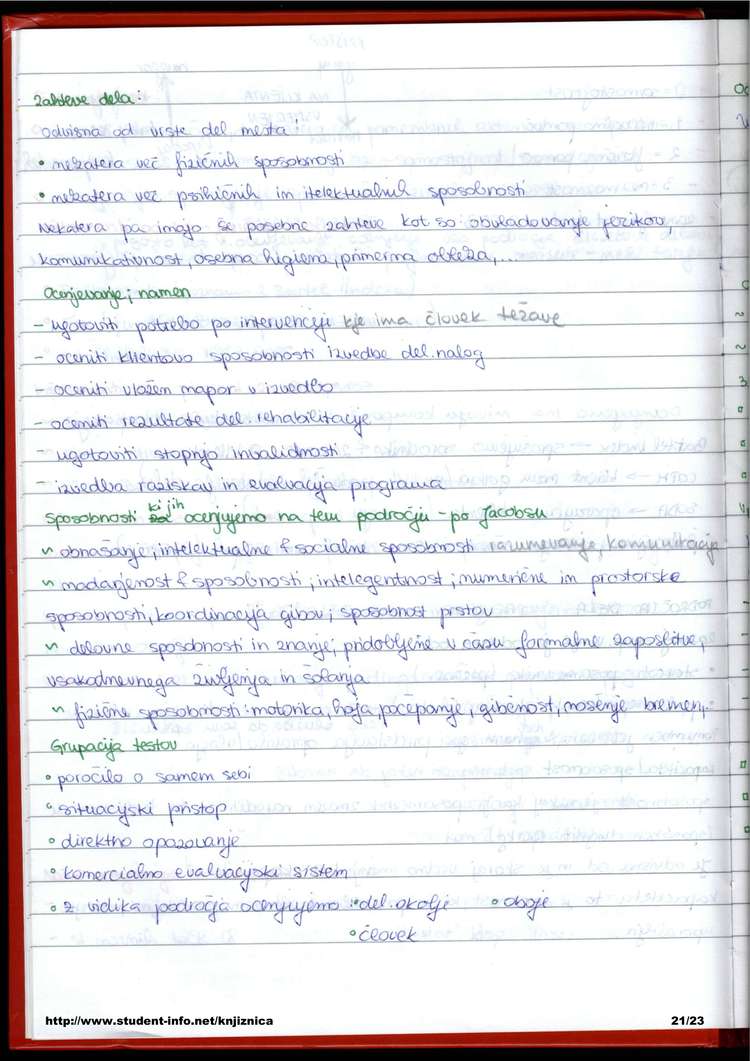 zahteve dela:
odvisna od vrste del. mesta:
• nekatera več fizičnih sposobnosti
• nekatera več psihičnih in itelektualnih sposobnosti
Nekatera pa imajo še posebne zahteve kot so: obvladovanje jezikov,
komunikativnost, osebna higiena, primerna obleka,...
Ocenjevanje; namen
- ugotoviti potrebo po intervenciji kje ima človek težave
- oceniti klientovo sposobnosti izvedbe del. nalog
- oceniti vložen napor v izvedbo
- oceniti rezultate del. rehabilitacije
- ugotoviti stopnjo invalidnosti
- izvedba raziskav in evalvacija programa
sposobnosti ki jih ocenjujemo na tem področju - po Jacobsu
~ obnašanje; intelektualne & socialne sposobnosti razumevanje, komunikacija
~ nadarjenost & sposobnosti; intelegentnost; numerične in prostorske
sposobnosti, koordinacija gibov; sposobnost prstov
~ delovne sposobnosti in znanje; pridobljene v času formalne zaposlitve,
vsakodnevnega življenja in šolanja
~ fizične sposobnosti: motorika, hoja, počepanje, gibčnost, nošenje bremen,..
Grupacija testov
• poročilo o samem sebi
• situacijski pristop
• direktno opazovanje
• komercialno evalvacijski sistem
• z vidika področja ocenjujemo: • del. okolje • oboje
• človek
http://www.student-info.net/knjiznica 21/23